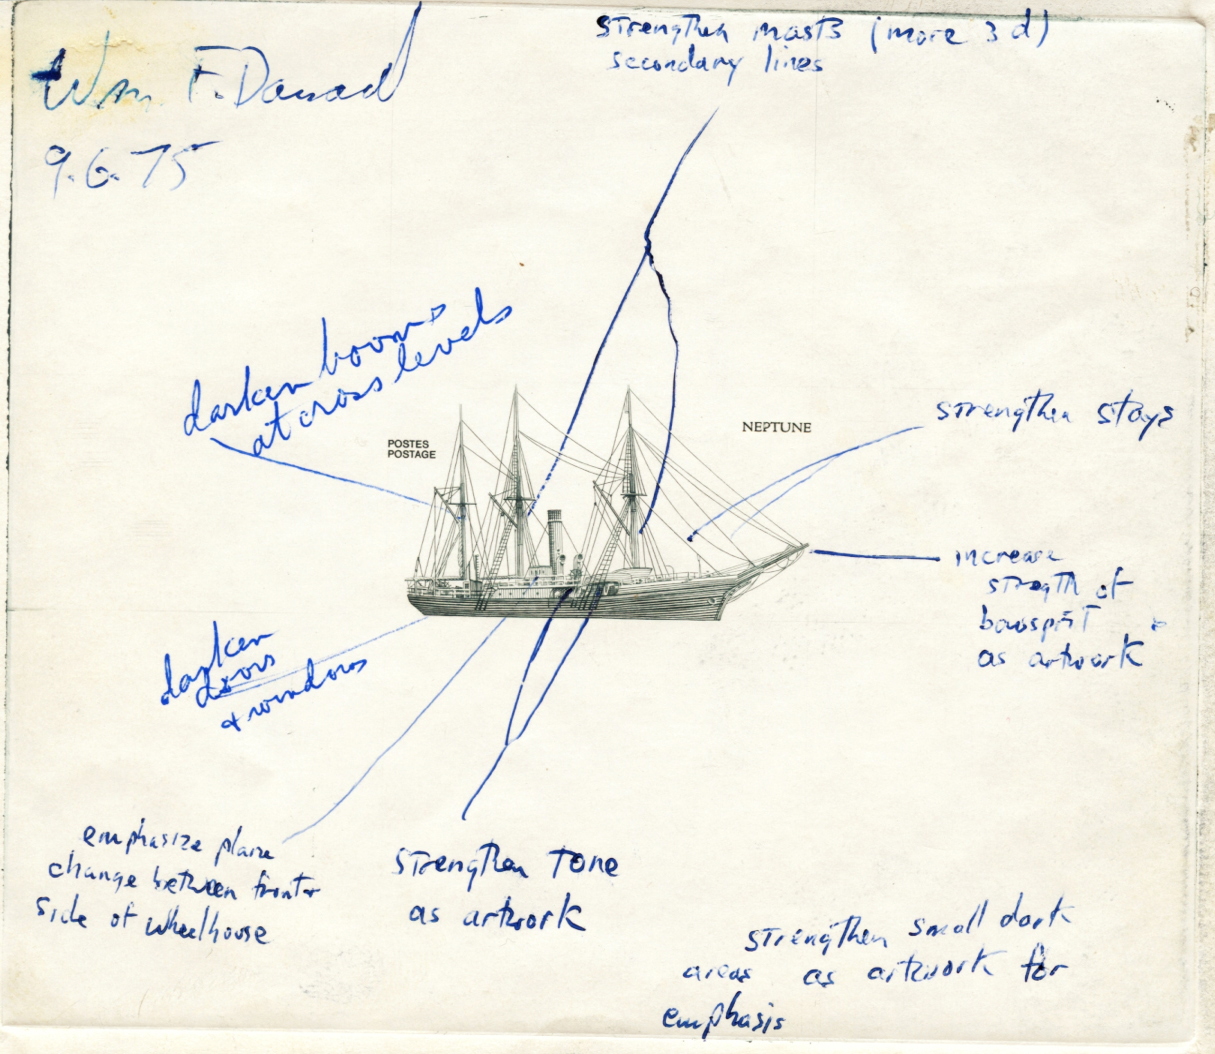 strengthen masts (more 3d)
secondary lines
Wm. F.
9.6.75
darken booms
at cross levels
POSTES
POSTAGE
NEPTUNE
strengthen stays
increase
strength of
bowsprit
as artwork
darken
doors
+ windows
emphasize plane
change between front +
side of wheelhouse
strengthen tone
as artwork
strengthen small dark
areas as artwork for
emphasis